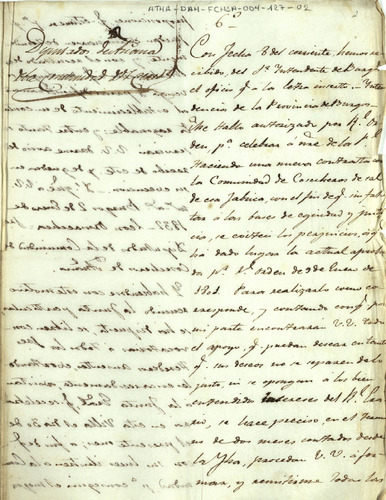 ATHA-DAH-FCHSA-004-127-02
6ª
Diputados de Añana
de la Comunidad de
Con fecha 8 del corriente, hemos re-
cibido del Sr Intendante de Burgos
el oficio q. a la letra inserto = Inten-
dencia de la Provincia de Burgos =
Me hallo autorizado por Rl Or-
den, pª celebrar a nre de la Rl
Hacienda una nueva contrata con
la Comunidad de Cosecheros de sal
de esa fabrica, con el fin de q.
a las bases de equidad y justi-
cia, se eviten los perjuicios, a q.
ha dado lugar la actual aproba-
da pr Rl orden de 9 de Enero de
1801. Para realizarlo como co-
rresponde, y contando conq. por
mi parte encontrarán V.V. todo
el apoyo q. puedan desear en tanto
q. sus deseos no se separen de lo
justo, ni se opongan a los bien
entendidos intereses del Rl Era-
rio, se hace preciso en el termi-
no de dos meses contados desde
la fha, procedan V.V. a for-
mar, y remitirme todas las